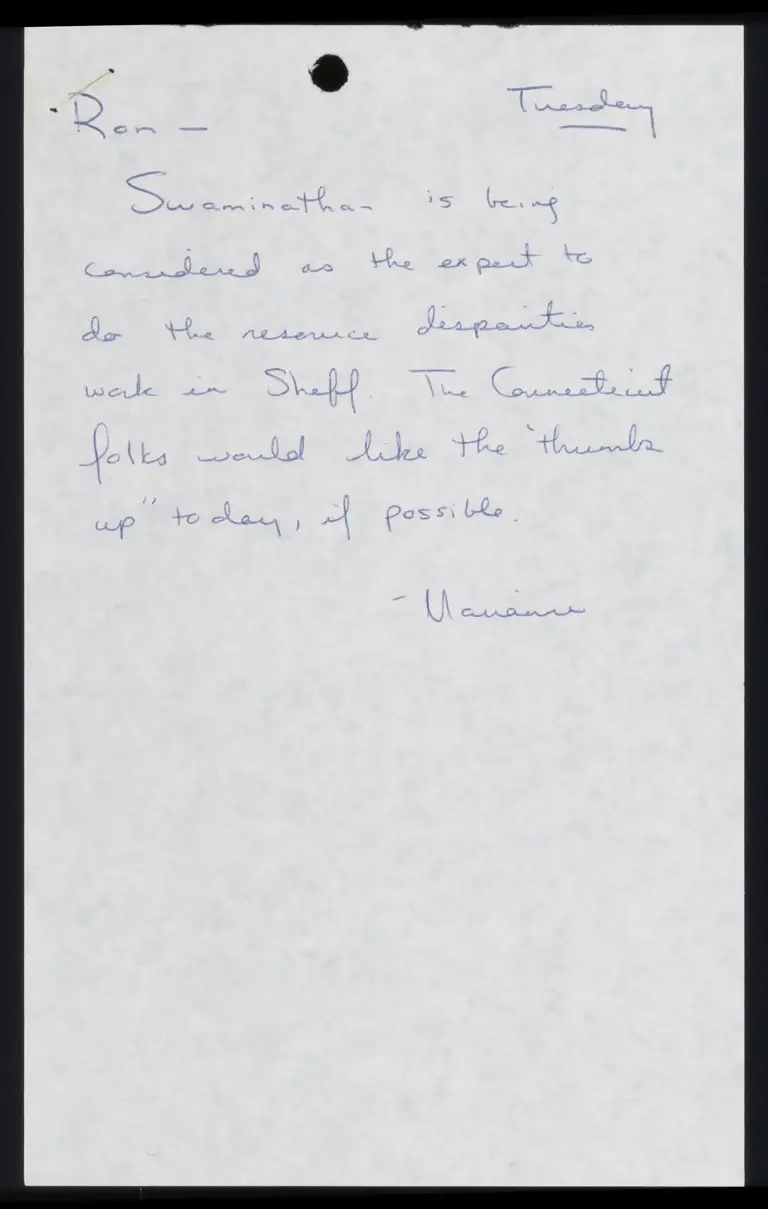 Ron — Tuesday
Swaminathan is being
considered as the expert to
do the resource disparities
work in Sheff. The Connecticut
folks would like the "thumbs
up" today, if possible.
- Marianne